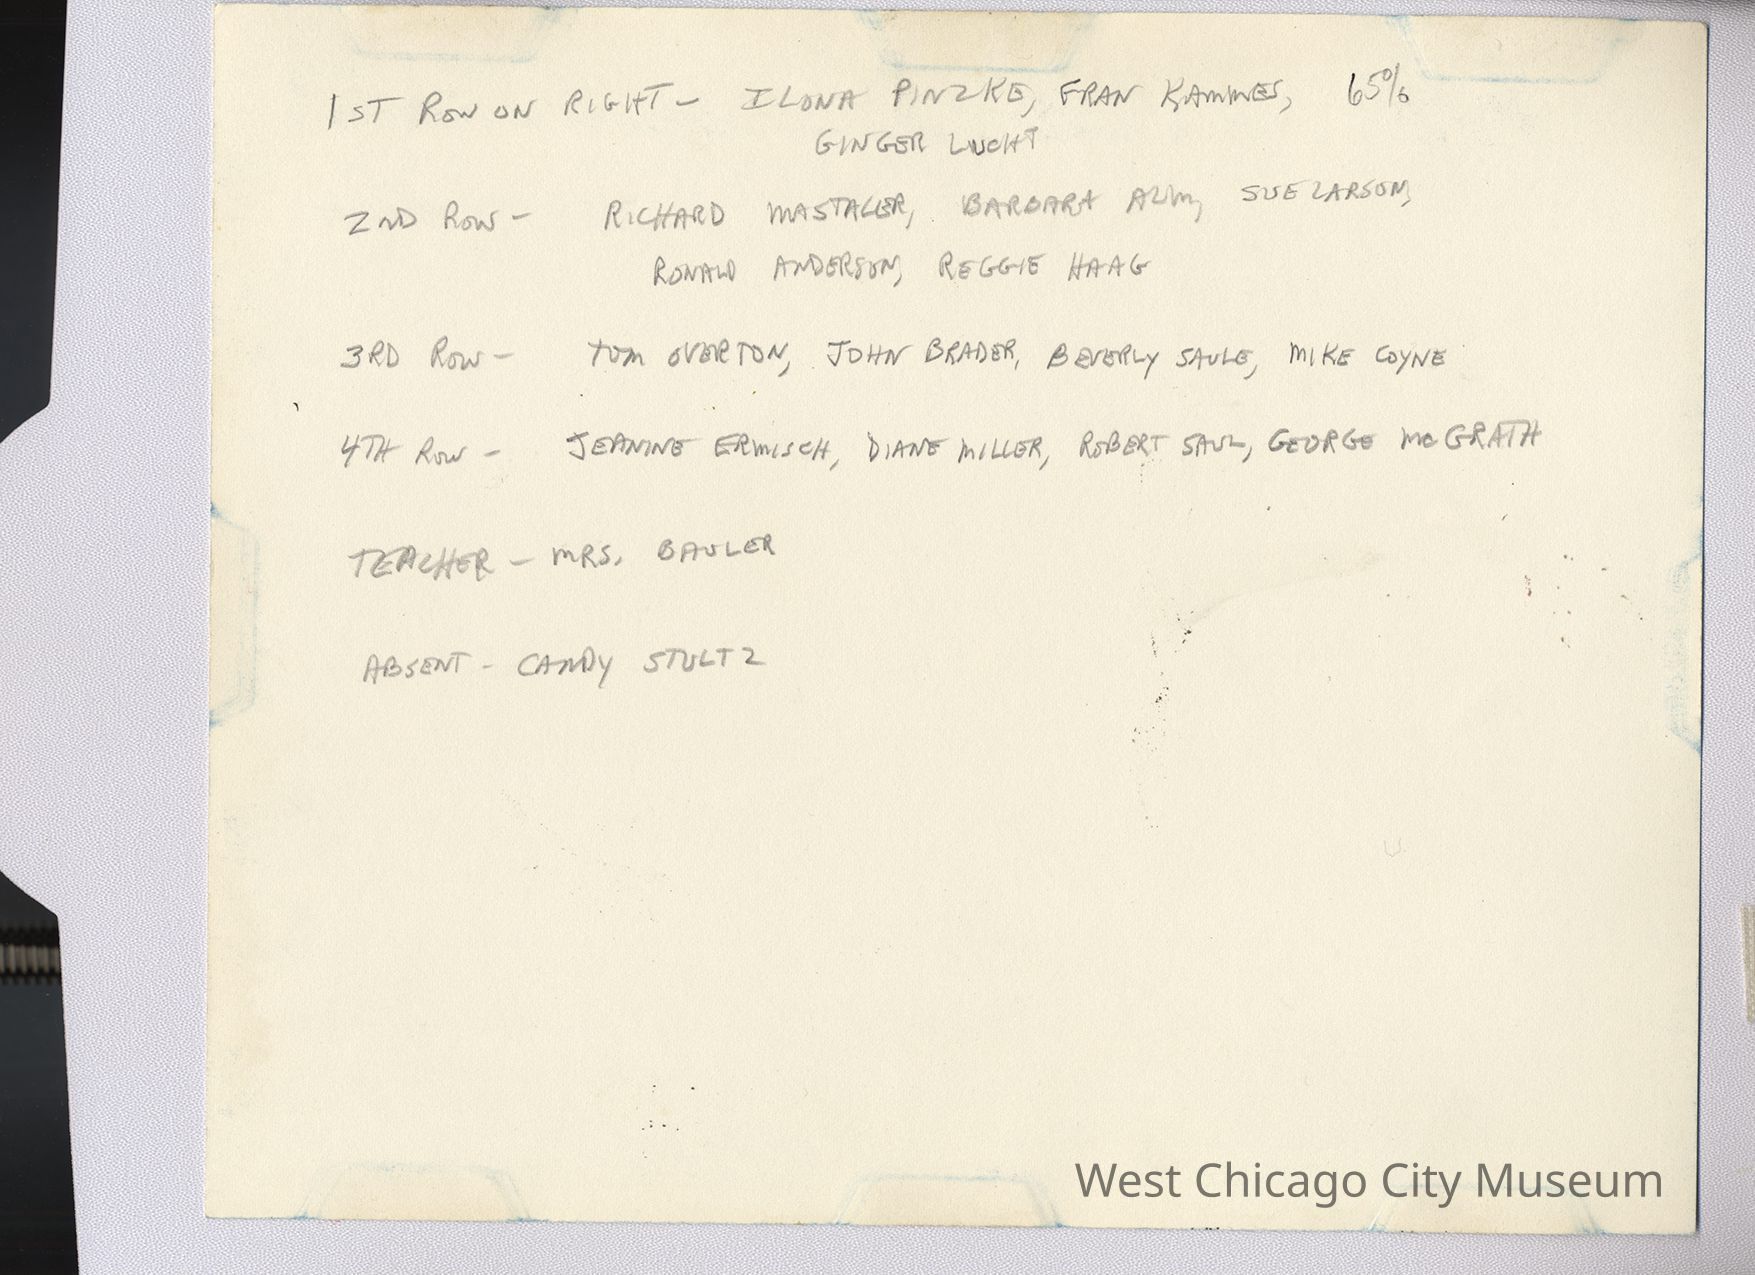 1ST ROW ON RIGHT - ILONA PINZKE, FRAN KAMMES, 65%
GINGER LUCHT
2ND ROW - RICHARD MASTALER, BARBARA SUE LARSON,
RONALD ANDERSON, REGGIE HAAG
3RD ROW - TOM OVERTON, JOHN BRADER, BEVERLY SAULE, MIKE COYNE
4TH ROW - JEANINE ERMISCH, DIANE MILLER, ROBERT SAUL, GEORGE McGRATH
TEACHER - MRS. BAULER
ABSENT - CANDY STULTZ
West Chicago City Museum